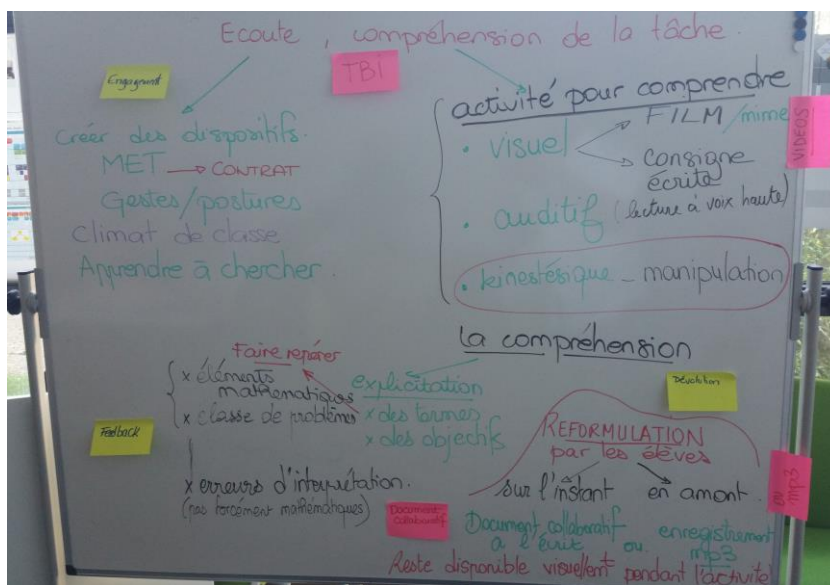 Ecoute, compréhension de la tâche.
TBI
Engagement
Créer des dispositifs.
MET → CONTRAT
Gestes/postures
Climat de classe
Apprendre à chercher.
activité pour comprendre
• visuel
FILM/mime
consigne
écrite
VIDEOS
• auditif (lecture à voix haute)
• kinestésique - manipulation
La compréhension
Faire repérer
x éléments
mathématiques
x classe de problèmes
explicitation
x des termes
x des objectifs
Feedback
x erreurs d'interprétation.
(pas forcément mathématiques)
Dévolution
REFORMULATION
par les élèves
sur l'instant
en amont.
mp3
Document
collaboratif
Document collaboratif
à l'écrit
ou
enregistrement
mp3
Reste disponible visuellent pendant l'activité